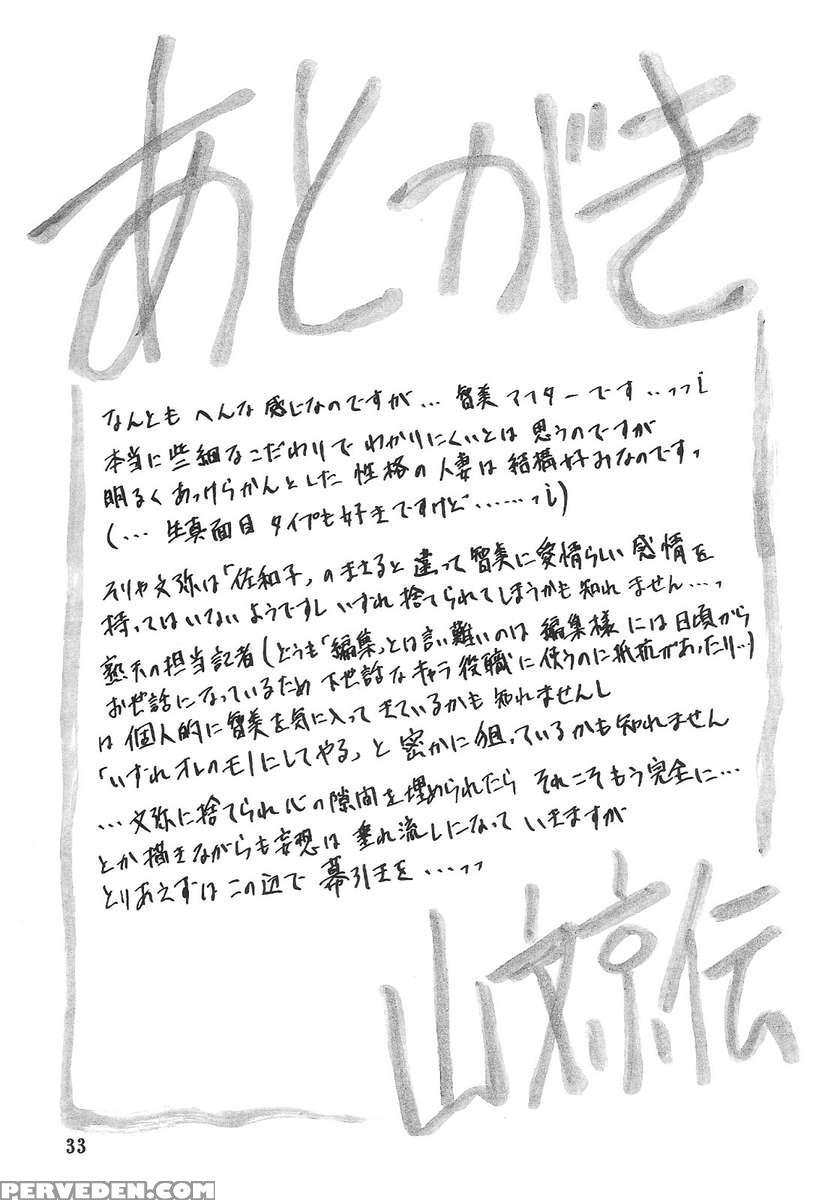 あとがき
なんとも へんな 感じなのですが… 智美アフターです‥っっ¡
本当に些細なこだわりで わかりにくいとは 思うのですが
明るく あっけらかんとした 性格の人妻は 結構好みなのですっ
(… 生真面目 タイプも好きですけど……っ¡)
そりゃ文弥は「佐和子」の まさると 違って 智美に愛情らしい 感情を
持ってはいないようですし いずれ 捨てられてしまうかも知れません…っ
熟天の担当記者(どうも「編集」とは言い難いのは 編集様 には日頃から
お世話になっているため 下世話な キャラ 役職に使うのに抵抗があったり‥)
は 個人的に 智美を気に入って きているかも知れませんし
「いずれオレのモノにしてやる」と 密かに狙っているかも知れません
… 文弥に捨てられ心の隙間を埋められたら それこそもう完全に…
とか描きながらも妄想は 垂れ流しになって いきますが
とりあえずは この辺で 幕引きを …っっ
山文京伝
33
PERVEDEN.COM